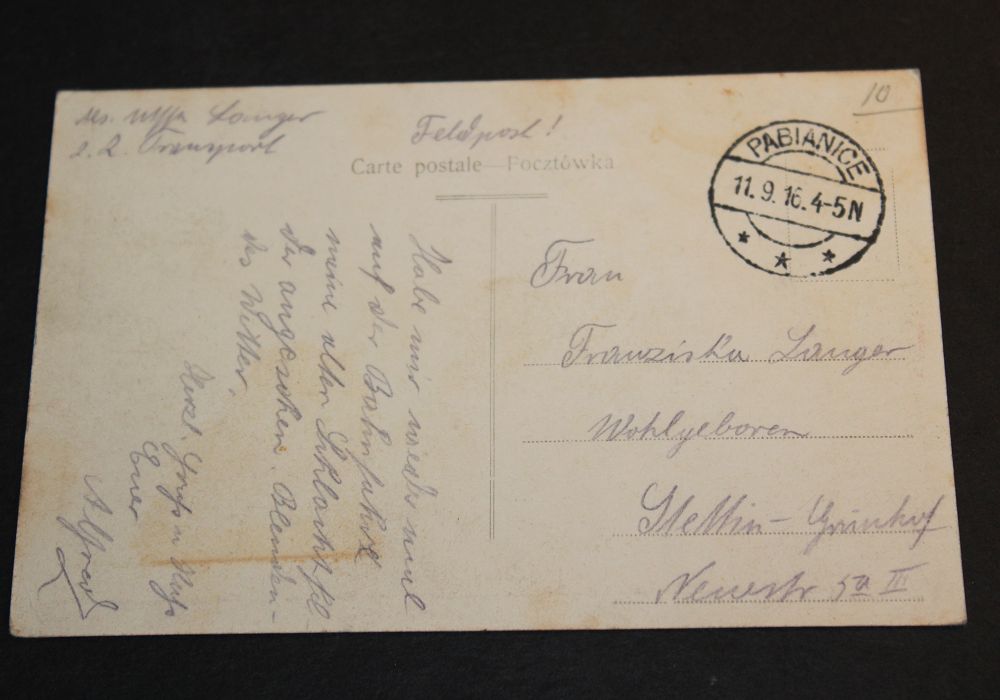 Langer
Transport
Feldpost!
10
Carte postale—Pocztówka
PABIANICE
11. 9. 16. 4-5N
Habe mir wieder mal
auf der Bahnfahrt
meine alten
der angesehen.
Herzl. Gruß u. Kuß
Euer
Alfred
Frau
Franziska Langer
Wohlgeboren
Stettin-Grünhof
Neuestr 5a III